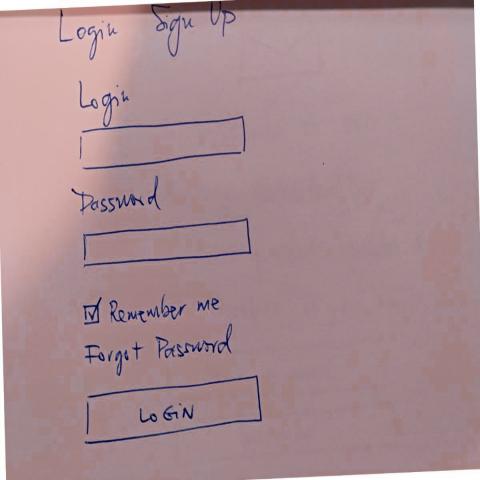 Login Sign Up
Login
Password
Remember me
Forgot Password
LOGIN